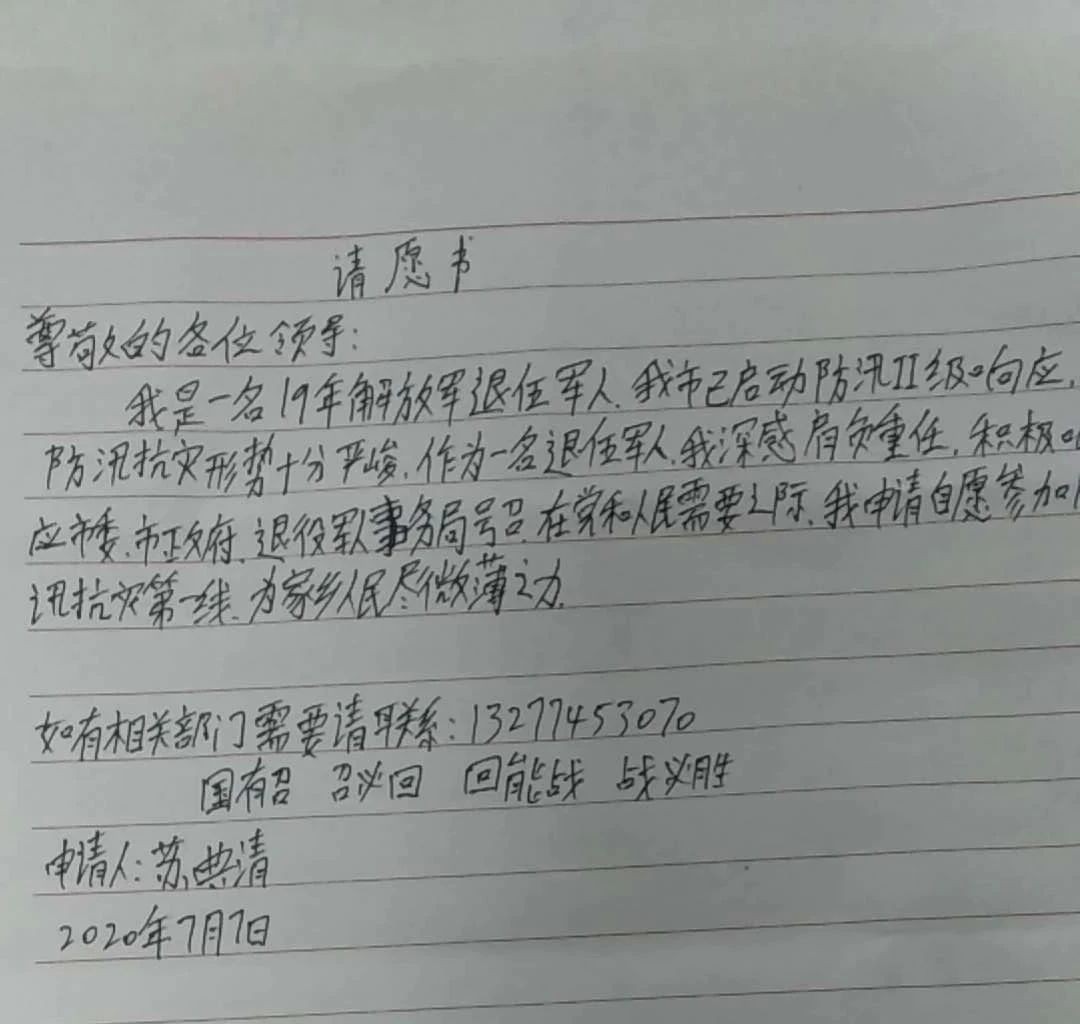 请愿书
尊敬的各位领导:
我是一名19年解放军退伍军人.我市已启动防汛II级响应,
防汛抗灾形势十分严峻.作为一名退伍军人.我深感肩负重任.积极
应市委.市政府.退役军人事务局号召.在党和人民需要之际.我申请自愿参加
汛抗灾第一线.为家乡人民尽微薄之力.
如有相关部门需要请联系:13277453070
国有召 召必回 回能战 战必胜
申请人:苏典清
2020年7月7日